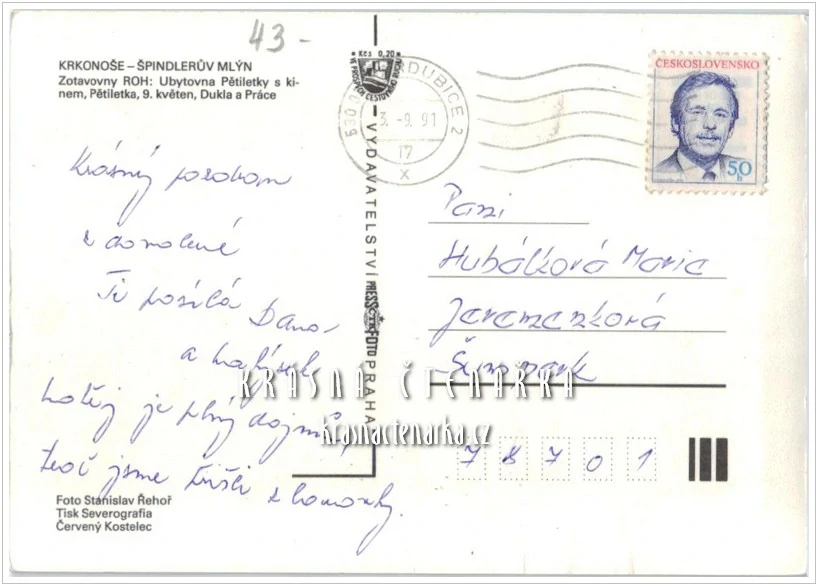 43-
KRKONOŠE – ŠPINDLERŮV MLÝN
Zotavovny ROH: Ubytovna Pětiletky s ki-
nem, Pětiletka, 9. květen, Dukla a Práce
Krásný pozdrav
z dovolené
Ti posílá Dana
a
je plný dojmů,
teď jsme přišli z
Foto Stanislav Řehoř
Tisk Severografia
Červený Kostelec
Kčs 0,20
VE PROSPĚCH CESTOVNÍHO RUCHU
VYDAVATELSTVÍ PRESSFOTO PRAHA
PARDUBICE 2
3. -9. 91
17
x
ČESKOSLOVENSKO
50
h
Paní
Hubálková Marie
Jeremenkova
Šumperk
78701
KRÁSNÁ ČTENÁŘKA
krasnactenarka.cz